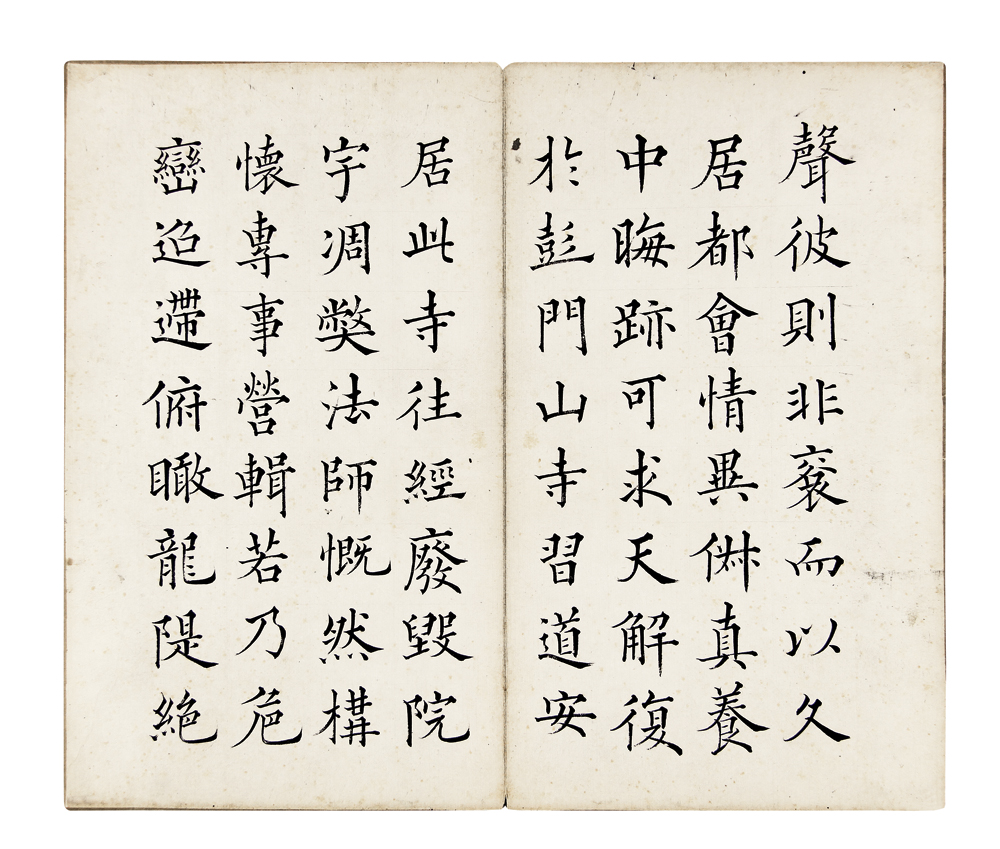 聲彼則非而以久
居都會情異俶真養
中晦跡可求天解復
於彭門山寺習道安
居此寺往經廢毀院
宇凋獘法師慨然構
懷專事營輯若乃危
巒迢遰俯瞰龍隄絶